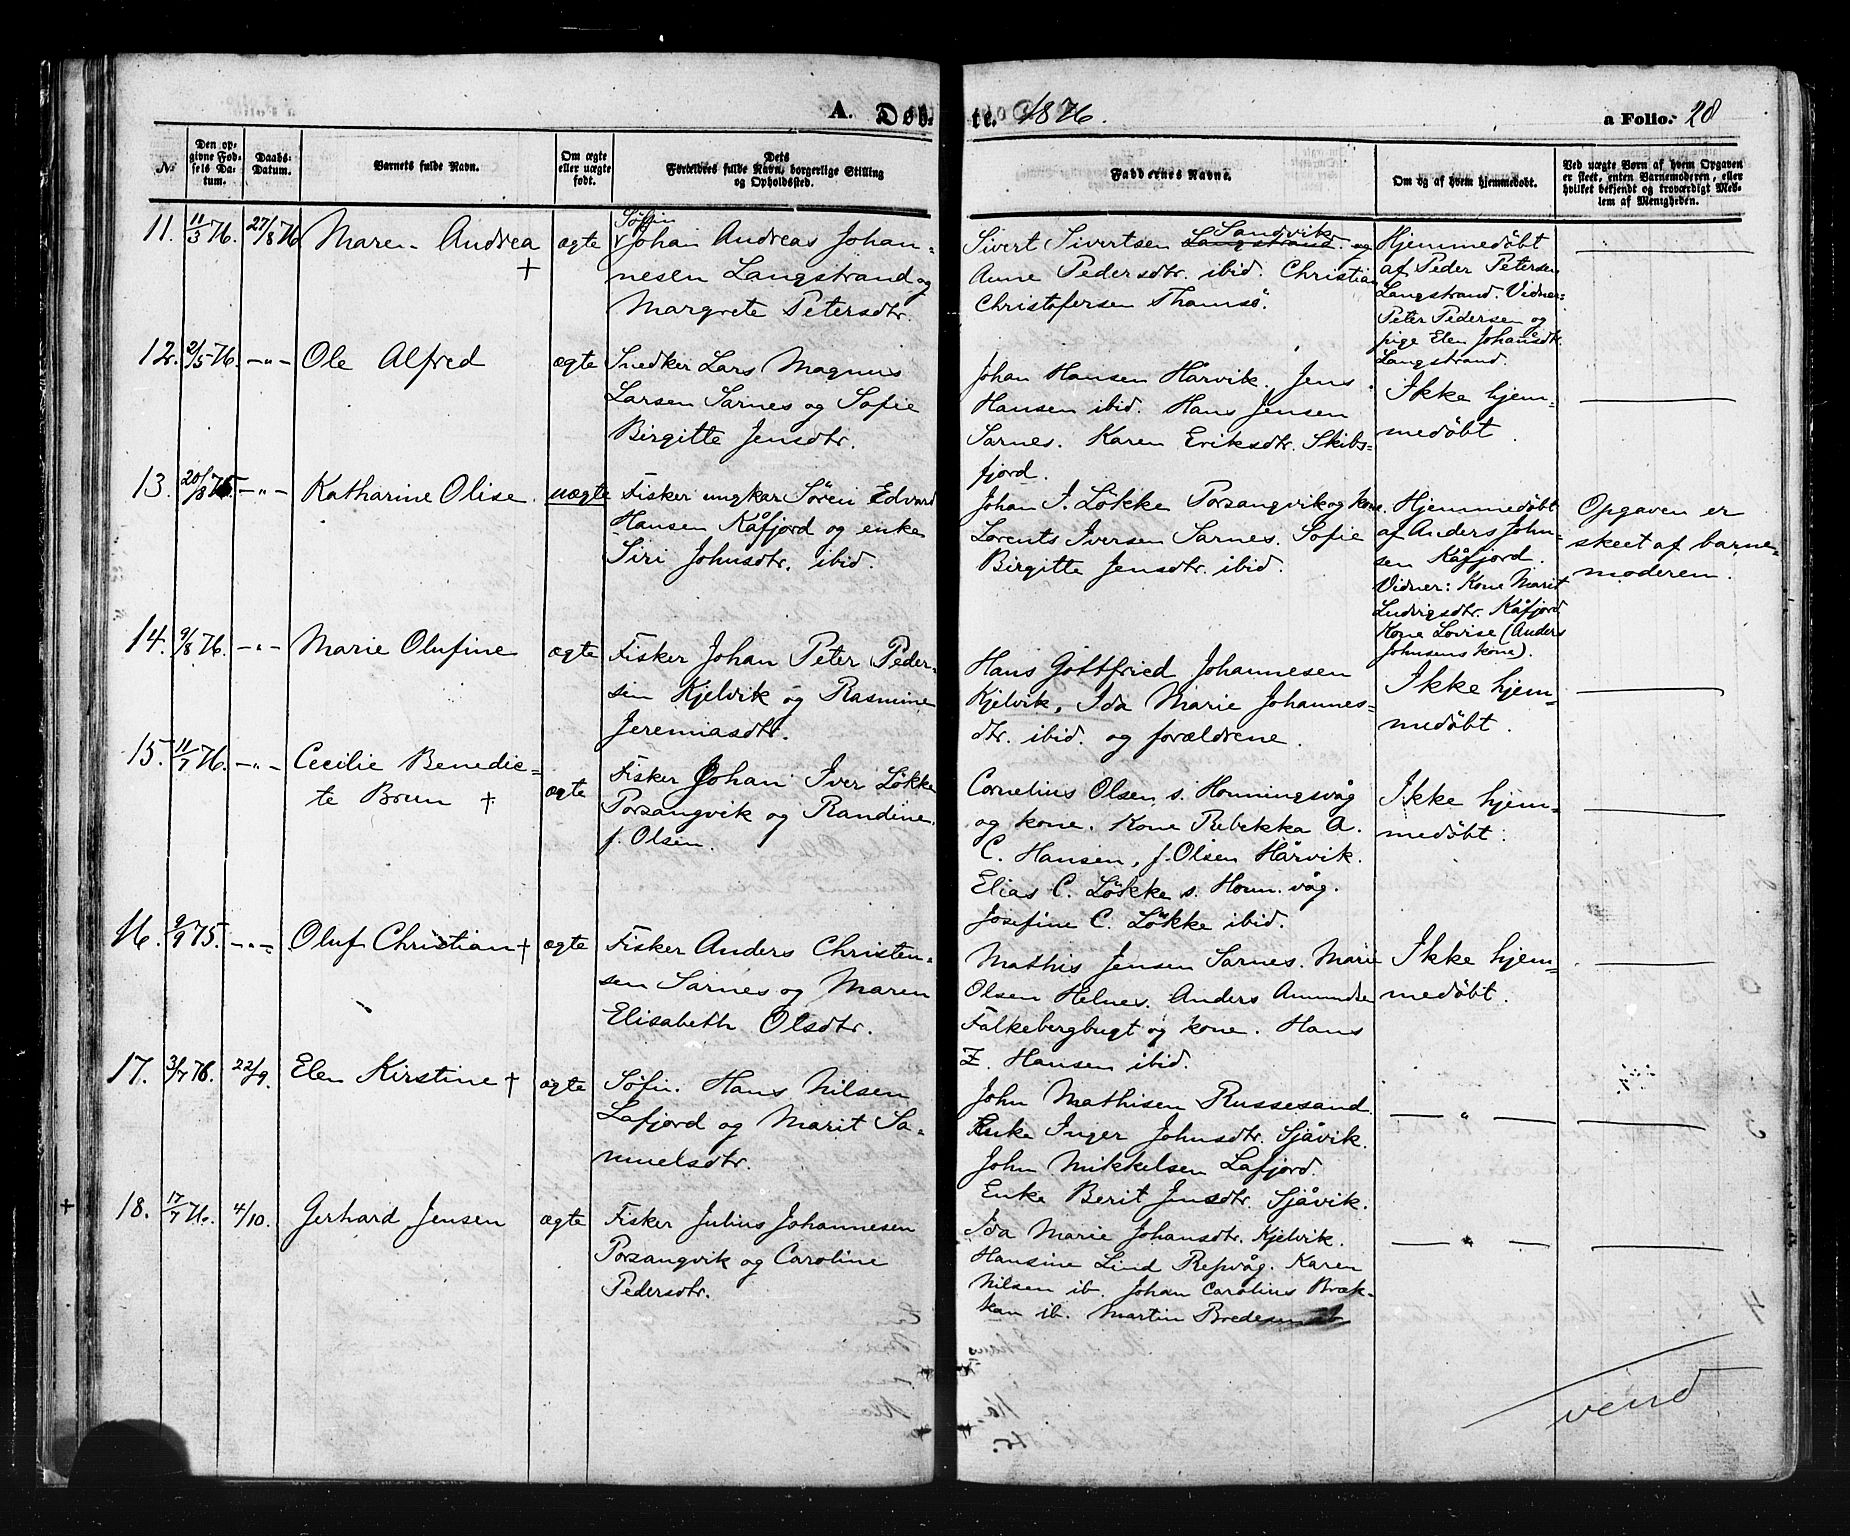 A. Døb- te. 1876. a Folio. 28
№
Den opgivne Fødsels Datum.
Daabs-Datum.
Barnets fulde Navn.
Om ægte eller uægte født.
Dets Forældres fulde Navn, borgerlige Stilling og Opholdssted.
Faddernes Navne.
Om og af hvem hjemmedøbt.
Ved uægte Børn af hvem Opgaven er skeet, enten Barnemoderen, eller hvilket bekjendt og troværdigt Medlem af Menigheden.
11. 11/3 76. 27/8 76 Maren Andrea + ægte
Söfin
Johan Andreas Johan-
nesen Langstrand og
Margrete Petersdtr.
Sandvik
Sivert Sivertsen Langstrand og
Anne Pedersdtr. ibid. Christian
Christofersen Thomsö.
Hjemmedöbt
af Peder Petersen
Langstrand. Vidner:
Peter Pedersen og
pige Elen Johansdtr.
Langstrand.
12. 2/5 76. -"- Ole Alfred ægte
Snedker Lars Magnus
Larsen Sarnes og Sofie
Birgitte Jensdtr.
Johan Hansen Hårvik. Jens
Hansen ibid. Hans Jensen
Sarnes. Karen Eriksdtr. Skibs-
fjord.
Ikke hjem-
medöbt.
13. 20/8 75. -"- Katharine Olise. uægte
Fisker ungkar Sören Edvard
Hansen Kåfjord og enke
Siri Johnsdtr. ibid.
Johan I. Lökke Porsangvik og kone.
Lorents Iversen Sarnes. Sofie
Birgitte Jensdtr. ibid.
Hjemmedöbt
af Anders John-
sen Kåfjord.
Vidner: Kone Marit
Ludvigsdtr. Kåfjord
Kone Lovise (Anders
Johnsens kone).
Opgaven er
skeet af barne-
moderen.
14. 9/8 76. -"- Marie Olufine ægte
Fisker Johan Peter Peder-
sen Kjelvik og Rasmine
Jeremiasdtr.
Hans Gottfried Johannesen
Kjelvik, Ida Marie Johannes-
dtr. ibid. og forældrene.
Ikke hjem-
medöbt.
15. 11/7 76. -"- Cecilie Benedic-
te Brun + ægte
Fisker Johan Iver Lökke
Porsangvik og Randine
f. Olsen.
Cornelius Olsen s. Honningsvåg
og kone. Kone Rebekka A.
C. Hansen, f. Olsen Hårvik.
Elias C. Lökke s. Honn.våg.
Josefine C. Lökke ibid.
Ikke hjem-
medöbt.
16. 9/9 75. -"- Oluf Christian + ægte
Fisker Anders Christen-
sen Sarnes og Maren
Elisabeth Olsdtr.
Mathis Jensen Sarnes. Marie
Olsen Helnes. Anders Amundsen
Falkebergbugt og kone. Hans
Z. Hansen ibid.
Ikke hjem-
medöbt.
17. 3/7 76. 22/9. Elen Kirstine + ægte
Söfin. Hans Nilsen
Lafjord og Marit Sa-
muelsdtr.
John Mathisen Russesand.
Enke Inger Johnsdtr. Sjåvik.
John Mikkelsen Lafjord.
Enke Berit Jensdtr. Sjåvik.
— " —
18. 17/7 76. 4/10. Gerhard Jensen ægte
Fisker Julius Johannesen
Porsangvik og Caroline
Pedersdtr.
Ida Marie Johansdtr. Kjelvik.
Hansine Lind Repvåg. Karen
Nilsen ib. Johan Carolius Bræk-
kan ib. Martin Bredesen ib
— " —
vend